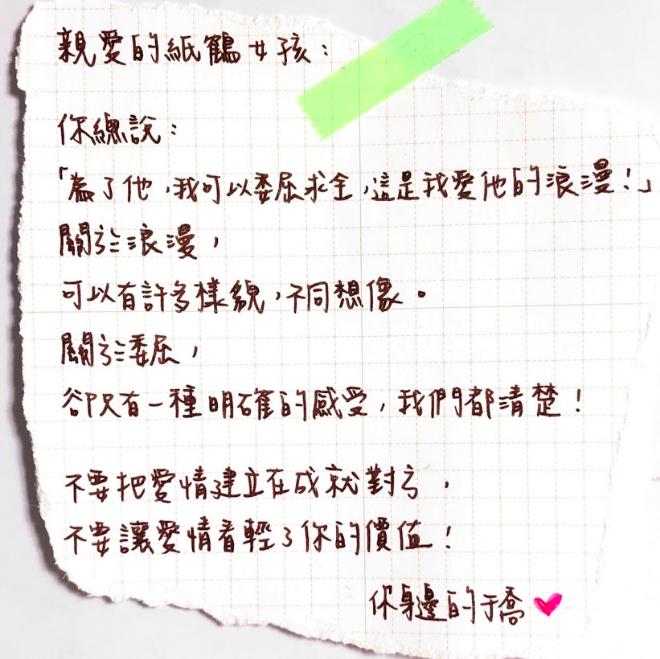 親愛的紙鶴女孩：
你總說：
「為了他，我可以委屈求全，這是我愛他的浪漫！」
關於浪漫，
可以有許多樣貌，不同想像。
關於委屈，
卻只有一種明確的感受，我們都清楚！
不要把愛情建立在成就對方，
不要讓愛情看輕了你的價值！
你身邊的于喬